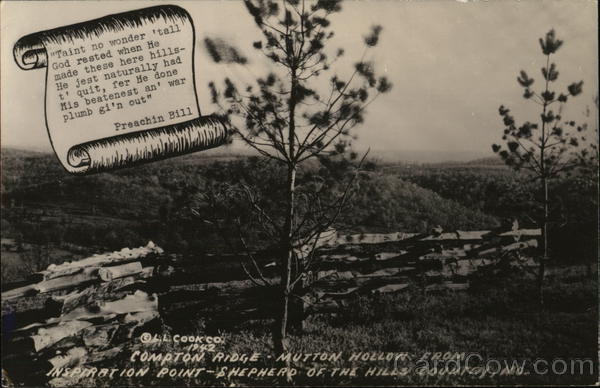 "Taint no wonder 'tall
God rested when He
made these here hills-
He jest naturally had
t' quit, fer He done
His beatenest an' war
plumb gi'n out"
Preachin Bill
©L.L. COOK CO.
1942
COMPTON RIDGE - MUTTON HOLLOW FROM
INSPIRATION POINT - SHEPHERD OF THE HILLS COUNTRY, MO.
CardCow.com